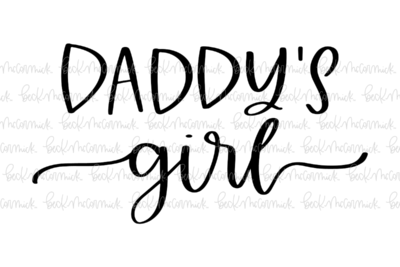 DADDY'S
girl